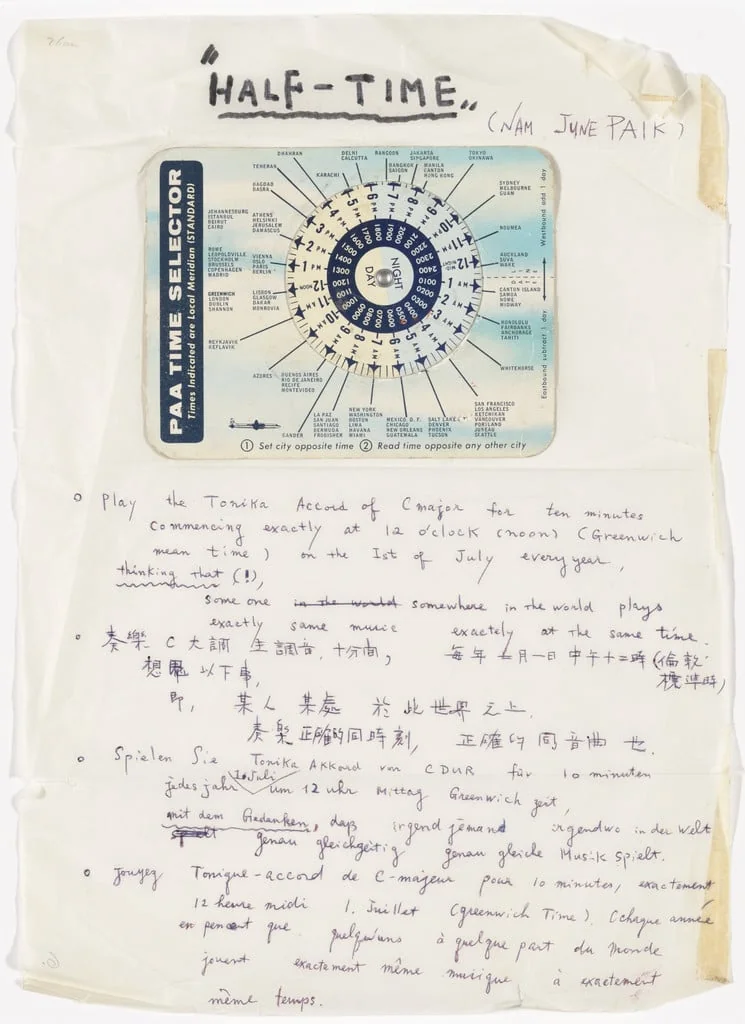 "HALF-TIME"
(NAM JUNE PAIK)
PAA TIME SELECTOR
Times Indicated are Local Meridian (STANDARD)
DHAHRAN
TEHERAN
BAGDAD
BASRA
JOHANNESBURG
ISTANBUL
BEIRUT
CAIRO
ATHENS
HELSINKI
JERUSALEM
DAMASCUS
ROME
LEOPOLDVILLE
STOCKHOLM
BRUSSELS
COPENHAGEN
MADRID
VIENNA
OSLO
PARIS
BERLIN
GREENWICH
LONDON
DUBLIN
SHANNON
LISBON
GLASGOW
DAKAR
MONROVIA
REYKJAVIK
KEFLAVIK
AZORES
BUENOS AIRES
RIO DE JANEIRO
RECIFE
MONTEVIDEO
GANDER
LA PAZ
SAN JUAN
SANTIAGO
BERMUDA
FROBISHER
NEW YORK
WASHINGTON
BOSTON
LIMA
HAVANA
MIAMI
MEXICO D. F.
CHICAGO
NEW ORLEANS
GUATEMALA
SALT LAKE C.
DENVER
PHOENIX
TUCSON
SAN FRANCISCO
LOS ANGELES
KETCHIKAN
VANCOUVER
PORTLAND
JUNEAU
SEATTLE
WHITEHORSE
HONOLULU
FAIRBANKS
ANCHORAGE
TAHITI
CANTON ISLAND
SAMOA
NOME
MIDWAY
DATE LINE
AUCKLAND
SUVA
WAKE
NOUMEA
SYDNEY
MELBOURNE
GUAM
TOKYO
OKINAWA
MANILA
CANTON
HONG KONG
JAKARTA
SIPGAPORE
BANGKOK
SAIGON
RANGOON
DELHI
CALCUTTA
KARACHI
Westbound add 1 day
Eastbound subtract 1 day
NIGHT
DAY
① Set city opposite time ② Read time opposite any other city
Play the Tonika Accord of C major for ten minutes
commencing exactly at 12 o'clock (noon) (Greenwich
mean time) on the 1st of July every year,
thinking that (!),
some one in the world somewhere in the world plays
exactly same music exactely at the same time.
奏樂 C 大調 主調音, 十分間, 每年 七月一日 中午十二時 (倫敦
標準時)
想思 以下事,
即, 某人 某處 於此世界之上,
奏樂 正確的同時刻, 正確的 同音曲 也.
Spielen Sie Tonika Akkord von C DUR für 10 minuten
jedes jahr 1. Juli um 12 uhr Mittag Greenwich zeit,
mit dem Gedanken, daß irgend jemand irgendwo in der Welt
genau gleichzeitig genau gleiche Musik spielt.
Jouyez Tonique-accord de C-majeur pour 10 minutes, exactement
12 heure midi 1. Juillet (greenwich Time). (chaque année
en pensent que quelqu'uns à quelque part du Monde
jouent exactement même musique à exactement
même temps.